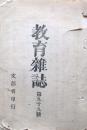 教育雜誌
第五十三號
文部省印行